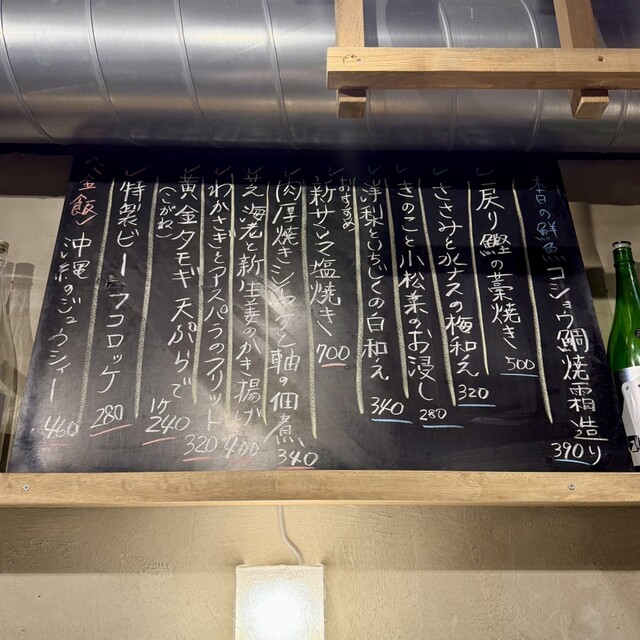 本日の鮮魚 コショウ鯛焼霜造り 390
戻り鰹の藁焼き 500
ささみと水ナスの梅和え 320
きのこと小松菜のお浸し 280
洋梨といちじくの白和え 340
おすすめ
新サンマ塩焼き 700
肉厚焼きシイタケと軸の佃煮 340
芝海老と新生姜のかき揚げ 400
わかさぎとアスパラのフリット 320
黄金タモギ天ぷらで 1ケ 240
(こがね)
特製ビーフコロッケ 280
〈土飯〉 沖縄のジュウシィー 460